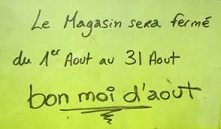 Le Magasin sera fermé
du 1er Aout au 31 Aout
bon moi d'aout